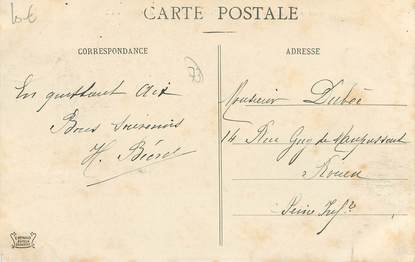 10€
CARTE POSTALE
CORRESPONDANCE
ADRESSE
73
En quittant Aix
Bons Souvenirs
H.
Monsieur Dubéc
14 Rue Guy de Maupassant
Rouen
Seine Infre